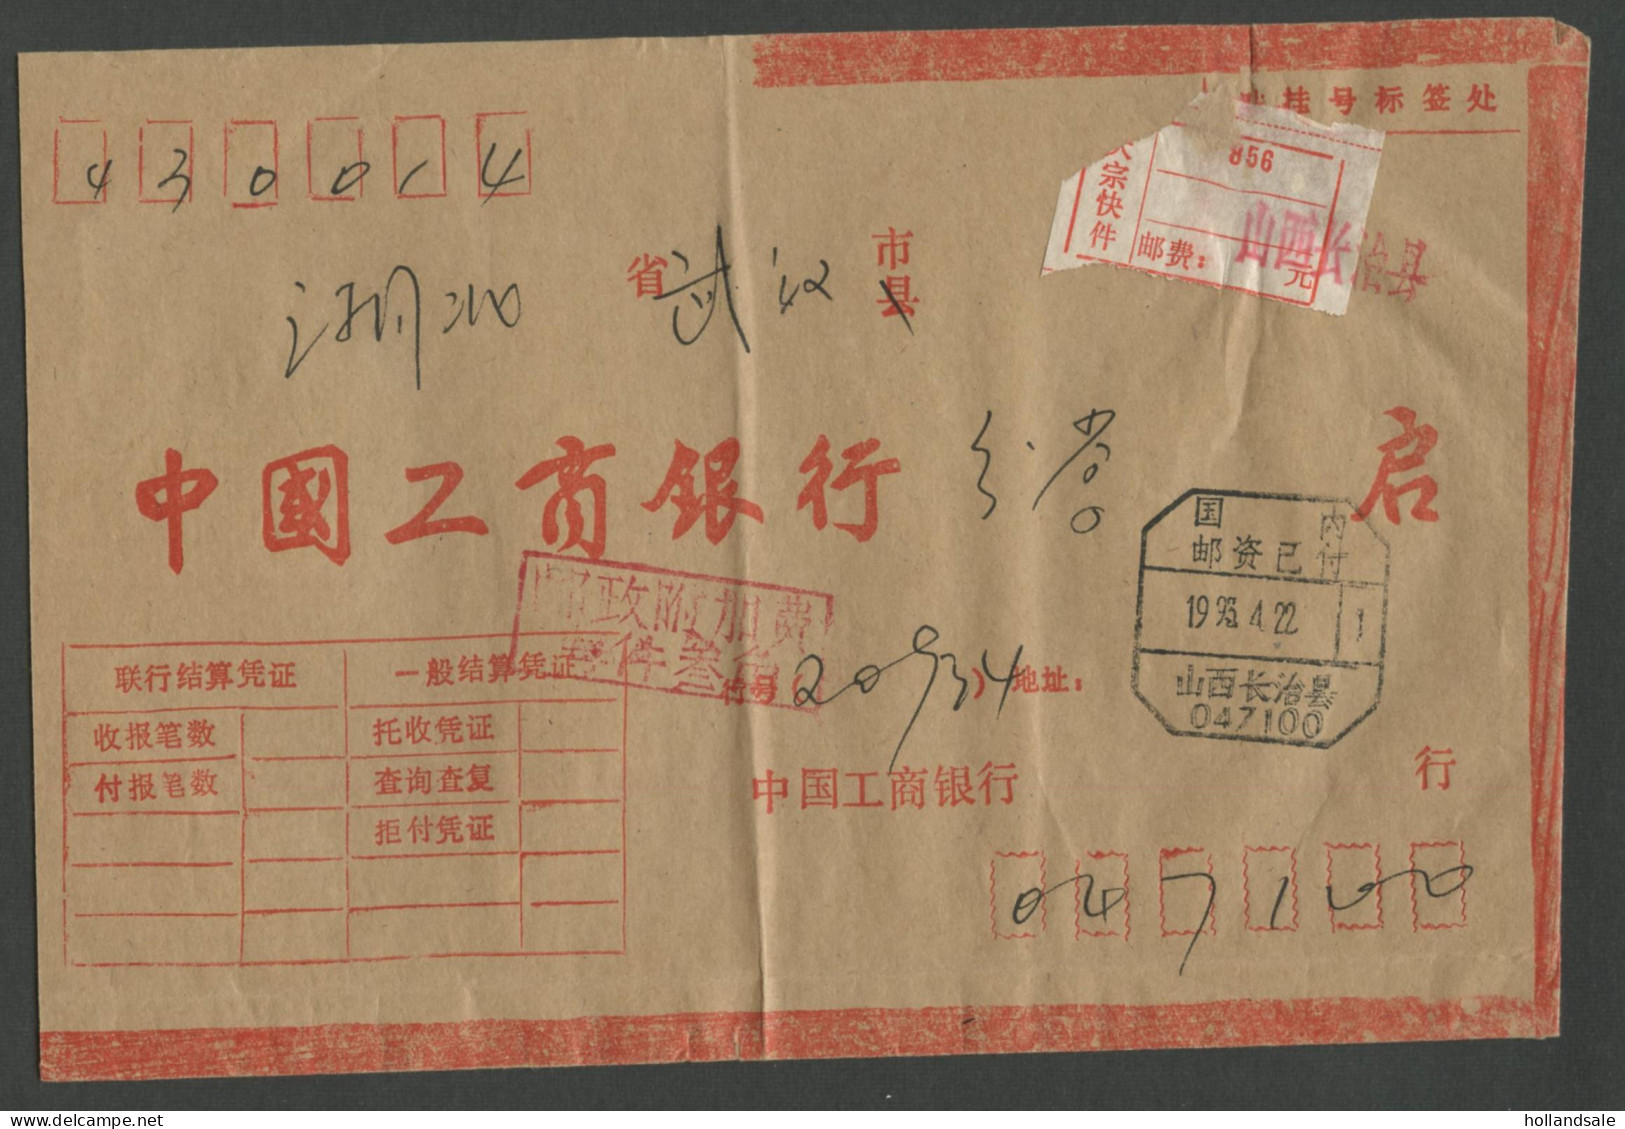 挂号标签处
430014
856
大宗快件
邮费: 元
山西长治县
湖北省武汉市县
中國工商銀行 启
国内
邮资已付
1993.4.22 1
山西长治县
047100
邮政附加费
每件叁角
行号(20934) 地址:
联行结算凭证 一般结算凭证
收报笔数 托收凭证
付报笔数 查询查复
拒付凭证
中国工商银行 行
047100
hollandsale